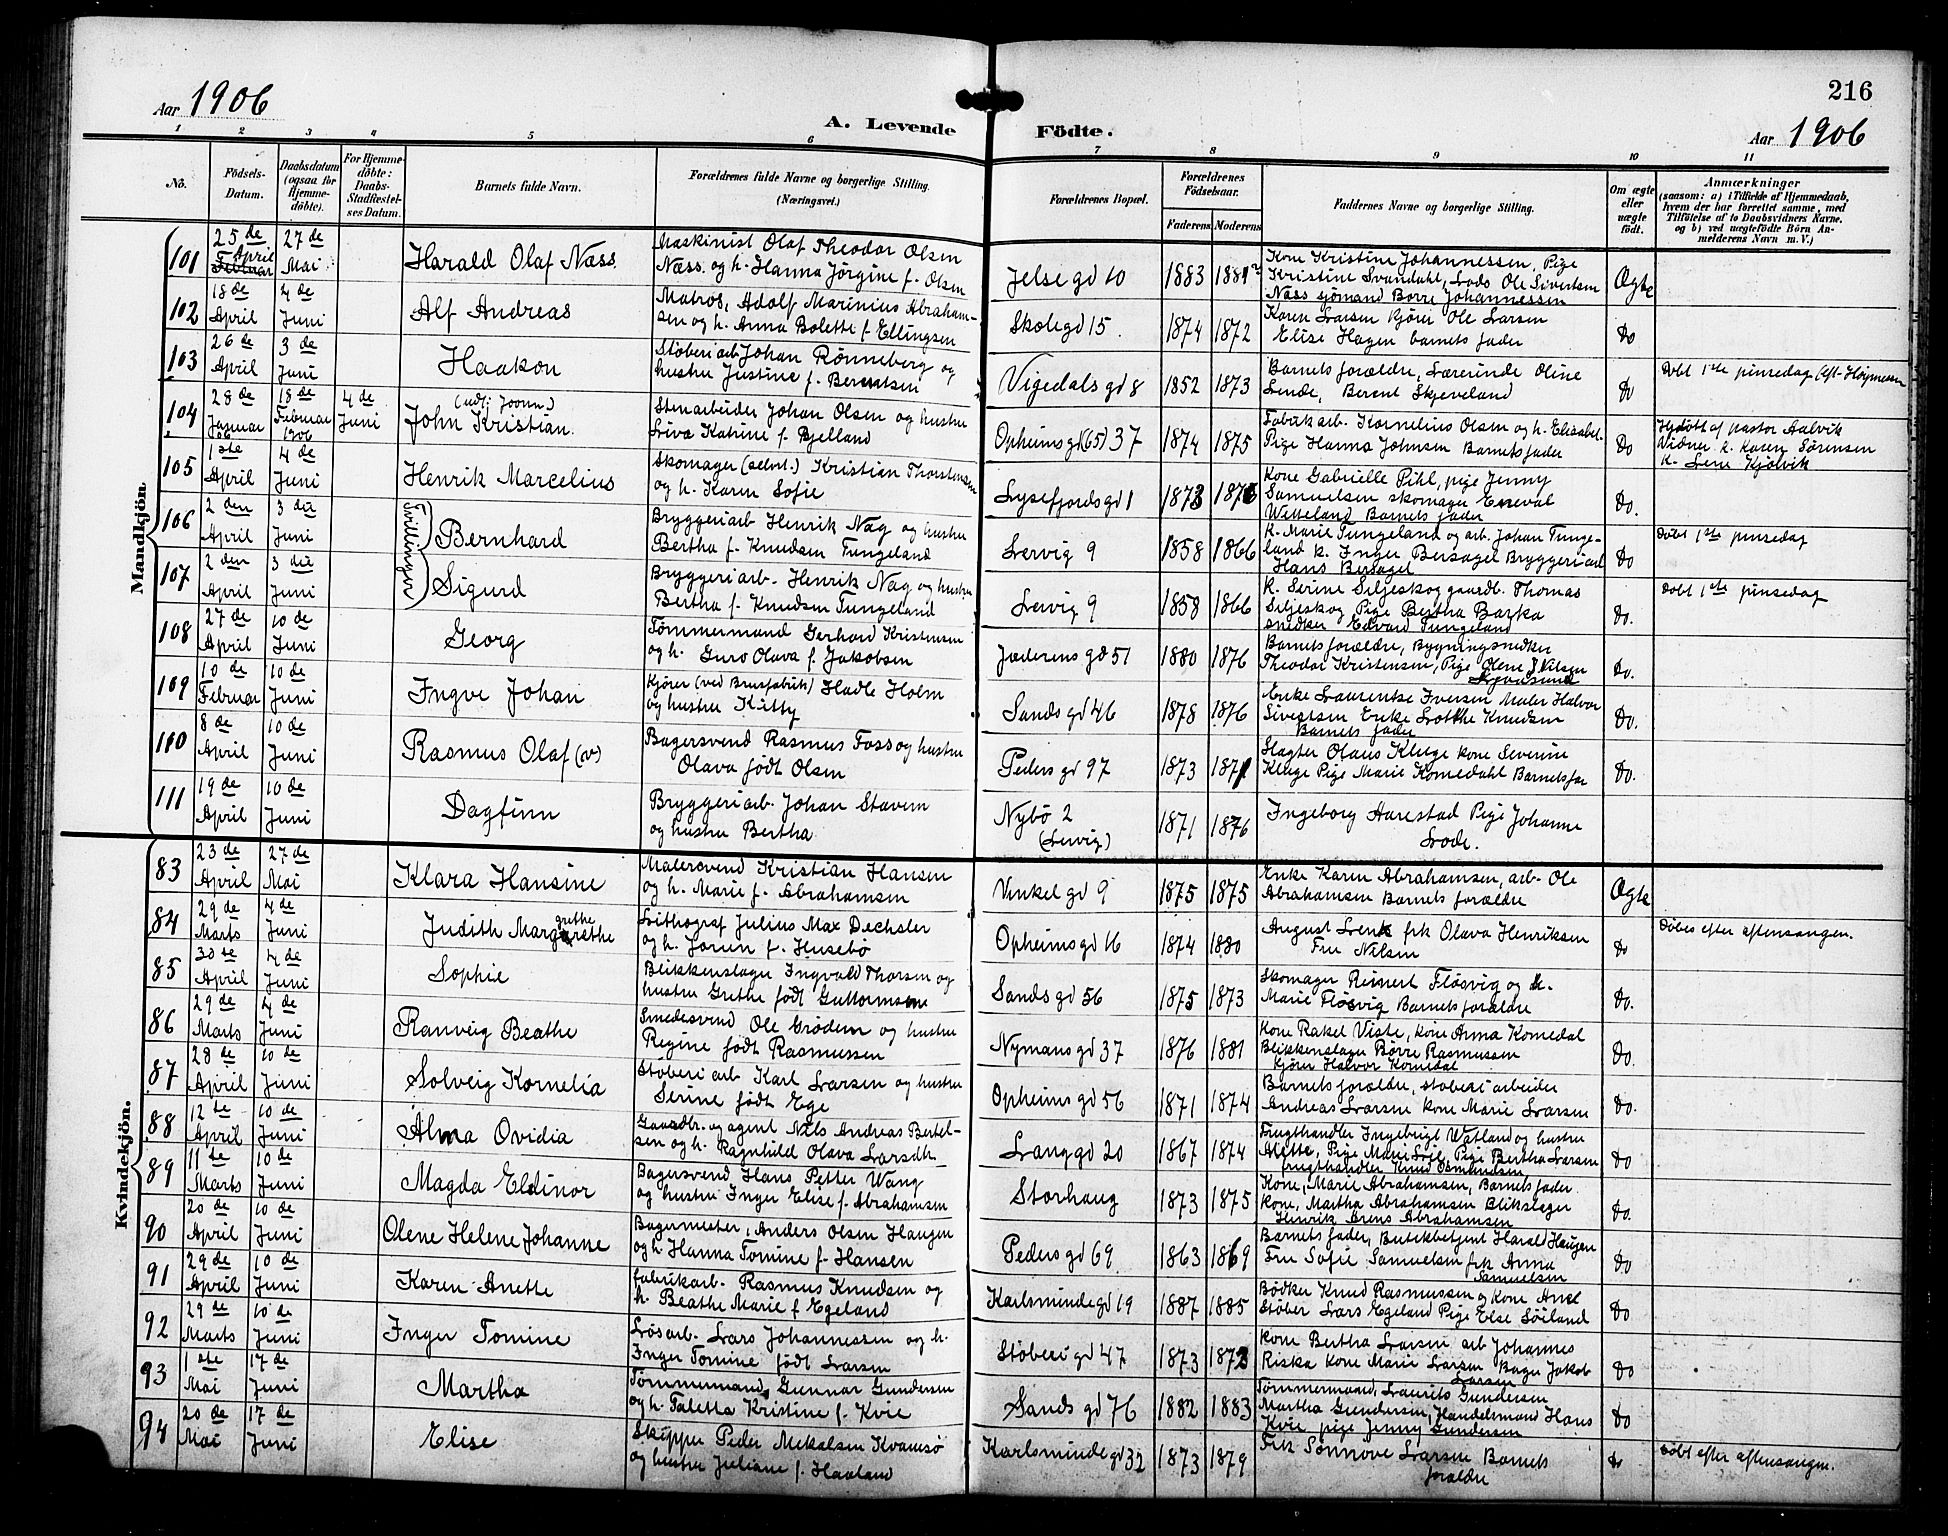 216
Aar 1906
A. Levende Födte.
Aar 1906
1 2 3 4 5 6 7 8 9 10 11
No.
Födsels-Datum.
Daabsdatum (ogsaa for Hjemme-döbte).
For Hjemme-döbte: Daabs-Stadfæstel-ses Datum.
Barnets fulde Navn.
Forældrenes fulde Navne og borgerlige Stilling. (Næringsvei.)
Forældrenes Bopæl.
Forældrenes Födselsaar.
Faderens Moderens
Faddernes Navne og borgerlige Stilling.
Om ægte eller uægte födt.
Anmærkninger
(saasom: a) i Tilfælde af Hjemmedaab, hvem der har forrettet samme, med Tilföielse af to Daabsvidners Navne, og b) ved uægtefödte Börn An-melderens Navn m. V.)
Mandkjön
101 25de April 27de Mai Harald Olaf Næss Maskinist Olaf Theodor Olsen
Næss og h. Hanna Jörgine f. Olsen Jelsegd 10 1883 1881 Kone Kristine Johannessen, Pige
Kristine Svandahl, Lods Ole Sivertsen
Næss sjömand Borre Johannessen Ægte
102 18de April 4de Juni Alf Andreas Matros, Adolf Marinius Abraham-
sen og h. Anna Bolette f. Ellingsen Skolegd 15. 1874 1872 Karen Larsen kjörer Ole Larsen
Elise Hagen barnets fader Do
103 26de April 3de Juni Haakon Stöberiarb Johan Rönneberg og
hustru Justine f. Berentsen Vigedalsgd 8 1852 1873 Barnets forældre, Lærerinde Oline
Lende, Berent Skjeveland Do Döbt 1ste pinsedag
104 28de Januar 06 18de Februar 1906 4de Juni John Kristian. Stenarbeider Johan Olsen og hustru
Liva Katrine f. Bjelland Opheimsgd (65) 37 1874 1875 Fabrikarb. Kornelius Olsen og h. Elisabet
Pige Hanna Johnsen Barnets fader Do Hjdöbt af pastor Aalvik
Vidner k. Karen Sörensen
k. Lene Kjölvik
105 1ste April 4de Juni Henrik Marcelius Skomager (selvst.) Kristian Thorstensen
og h. Karen Sofie Lysefjordsgd 1 1873 Kone Gabrielle Pihl, pige Jenny
Samuelsen skomager Eneval
Wetteland Barnets fader Do.
Tvillinger
106 2den April 3die Juni Bernhard Bryggeriarb Henrik Næg og hustru
Bertha f. Knudsen Tungeland Lervig 9 1858 1866 k. Marie Tungeland og arb. Johan Tunge-
land k. Inger Bersagel Bryggeriarb
Hans Bersagel Do Döbt 1ste pinsedag
107 2den April 3die Juni Sigurd Bryggeriarb. Henrik Næg og hustru
Bertha f. Knudsen Tungeland Lervig 9 1858 1866 k. Serine Siljeskog gaardb. Thomas
Siljeskog Pige Bertha Barka
snedker Edvard Tungeland Do. Döbt 1ste pinsedag
108 27de April 10de Juni Georg Tömmermand Gerhard Kristensen
og h. Guro Olava f. Jakobsen Jæderensgd 51 1880 1876 Barnets forældre, Bygningsnedker
Theodor Kristensen, Pige Olene J Nilsen Do.
109 10de Februar 10de Juni Ingve Johan Kjörer (ved Brusfabrik) Hadle Holm
og hustru Kitty Sandsgd 46 1878 1876 Enke Laurentse Iversen Maler Halvor
Sivertsen Enke Lotthe Knudsen
Barnets fader Do.
110 8de April 10de Juni Rasmus Olaf (v) Bagersvend Rasmus Foss og hustru
Olava födt Olsen Pedersgd 97 1873 1871 Slagter Olaus Kluge kone Severine
Kluge Pige Marie Komedahl Barnets far Do.
111 19de April 10de Juni Dagfinn Bryggeriarb. Johan Stavem
og hustru Bertha. Nybö 2 (Lervig) 1871 1876 Ingeborg Harestad Pige Johanne
Lode.
Kvindekjön.
83 23de April 27de Mai Klara Hansine Malersvend Kristian Hansen
og h. Marie f. Abrahamsen Vinkelgd 9 1875 1875 Enke Karen Abrahamsen, arb. Ole
Abrahamsen Barnets forældre Ægte
84 29de Marts 4de Juni Judith Margarethe Lithograf Julius Max Dechsler
og h. Jorun f. Husebö Opheimsgd 16 1874 1880 August Lenk frk Olava Henriksen
Fru Nilsen Do Döbes efter aftensangen.
85 30te April 4de Juni Sophie Blikkenslager Ingvald Thorsen og
hustru Grethe födt Guttormsen Sandsgd 56 1875 1873 Skomager Reinert Flösvig og h.
Marie Flösvig Barnets forældre Do.
86 29de Marts 4de Juni Ranveig Beathe Smedesvend Ole Grödem og hustru
Regine födt Rasmussen Nymansgd 37 1876 1881 Kone Rakel Viste, kone Anna Komedal
Blikkenslager Börre Rasmussen
Kjörer Halvor Komedal Do.
87 28de April 10de Juni Solveig Kornelia Stöberiarb Karl Larsen og hustru
Serine födt Ege Opheimsgd 56 1871 1874 Barnets forældre, stöberiarbeider
Andreas Larsen kone Marie Larsen Do.
88 12te April 10de Juni Alma Ovidia Gaardbr. og agent Nils Andreas Bertel-
sen og h. Ragnhild Olava Larsdtr. Langgd 20 1867 1874 Frugthandler Ingebrigt Watland og hustru
Alette, Pige Marie Lie, Pige Bertha Larsen
frugthandler Knud Osmundsen Do
89 11te Marts 10de Juni Magda Eldinor Bagersvend Hans Petter Wang
og hustru Inger Elise f. Abrahamsen Storhaug 1873 1875 Kone, Marie Abrahamsen, Barnets fader.
Kone, Martha Abrahamsen Blikslager
Henrik Arens Abrahamsen Do.
90 20de April 10de Juni Olene Helene Johanne Bagermester, Anders Olsen Haugen
og h. Hanna Tomine f. Hansen Pedersgd 69 1863 1869 Barnets fader, Butikbetjent Harald Haugen
Fru Sofie Samuelsen frk Anna
Samuelsen Do
91 29de April 10de Juni Karen Anette fabrikarb. Rasmus Knudsen og
h. Beathe Marie f Egeland Karlsmindegd 19 1887 1885 Bödker Knud Rasmussen og kone Anne
Stöber Lars Egeland Pige Else Söiland Do
92 29de Marts 10de Juni Inger Tomine Lösarb. Lars Johannessen og h.
Inger Tomine födt Larsen Stöberigd 47 1873 1873 Kone Bertha Larsen arb Johannes
Riska kone Marie Larsen Bager Jakob
Larsen Do
93 1ste Mai 17de Juni Martha Tömmermand Gunnar Gundersen
og h. Taletta Kristine f. Kvie Sandsgd 76 1882 1883 Tömmermand, Laurits Gundersen
Martha Gundersen, Handelsmand Hans
Kvie, pige Jenny Gundersen Do
94 20de Mai 17de Juni Elise Skipper Peder Mikalsen Kvamsö
og hustru Juliane f. Haaland Karlsmindegd 32 1873 1879 Frk Sönnove Larsen Barnets
forældre Do Döbt efter aftensangen.